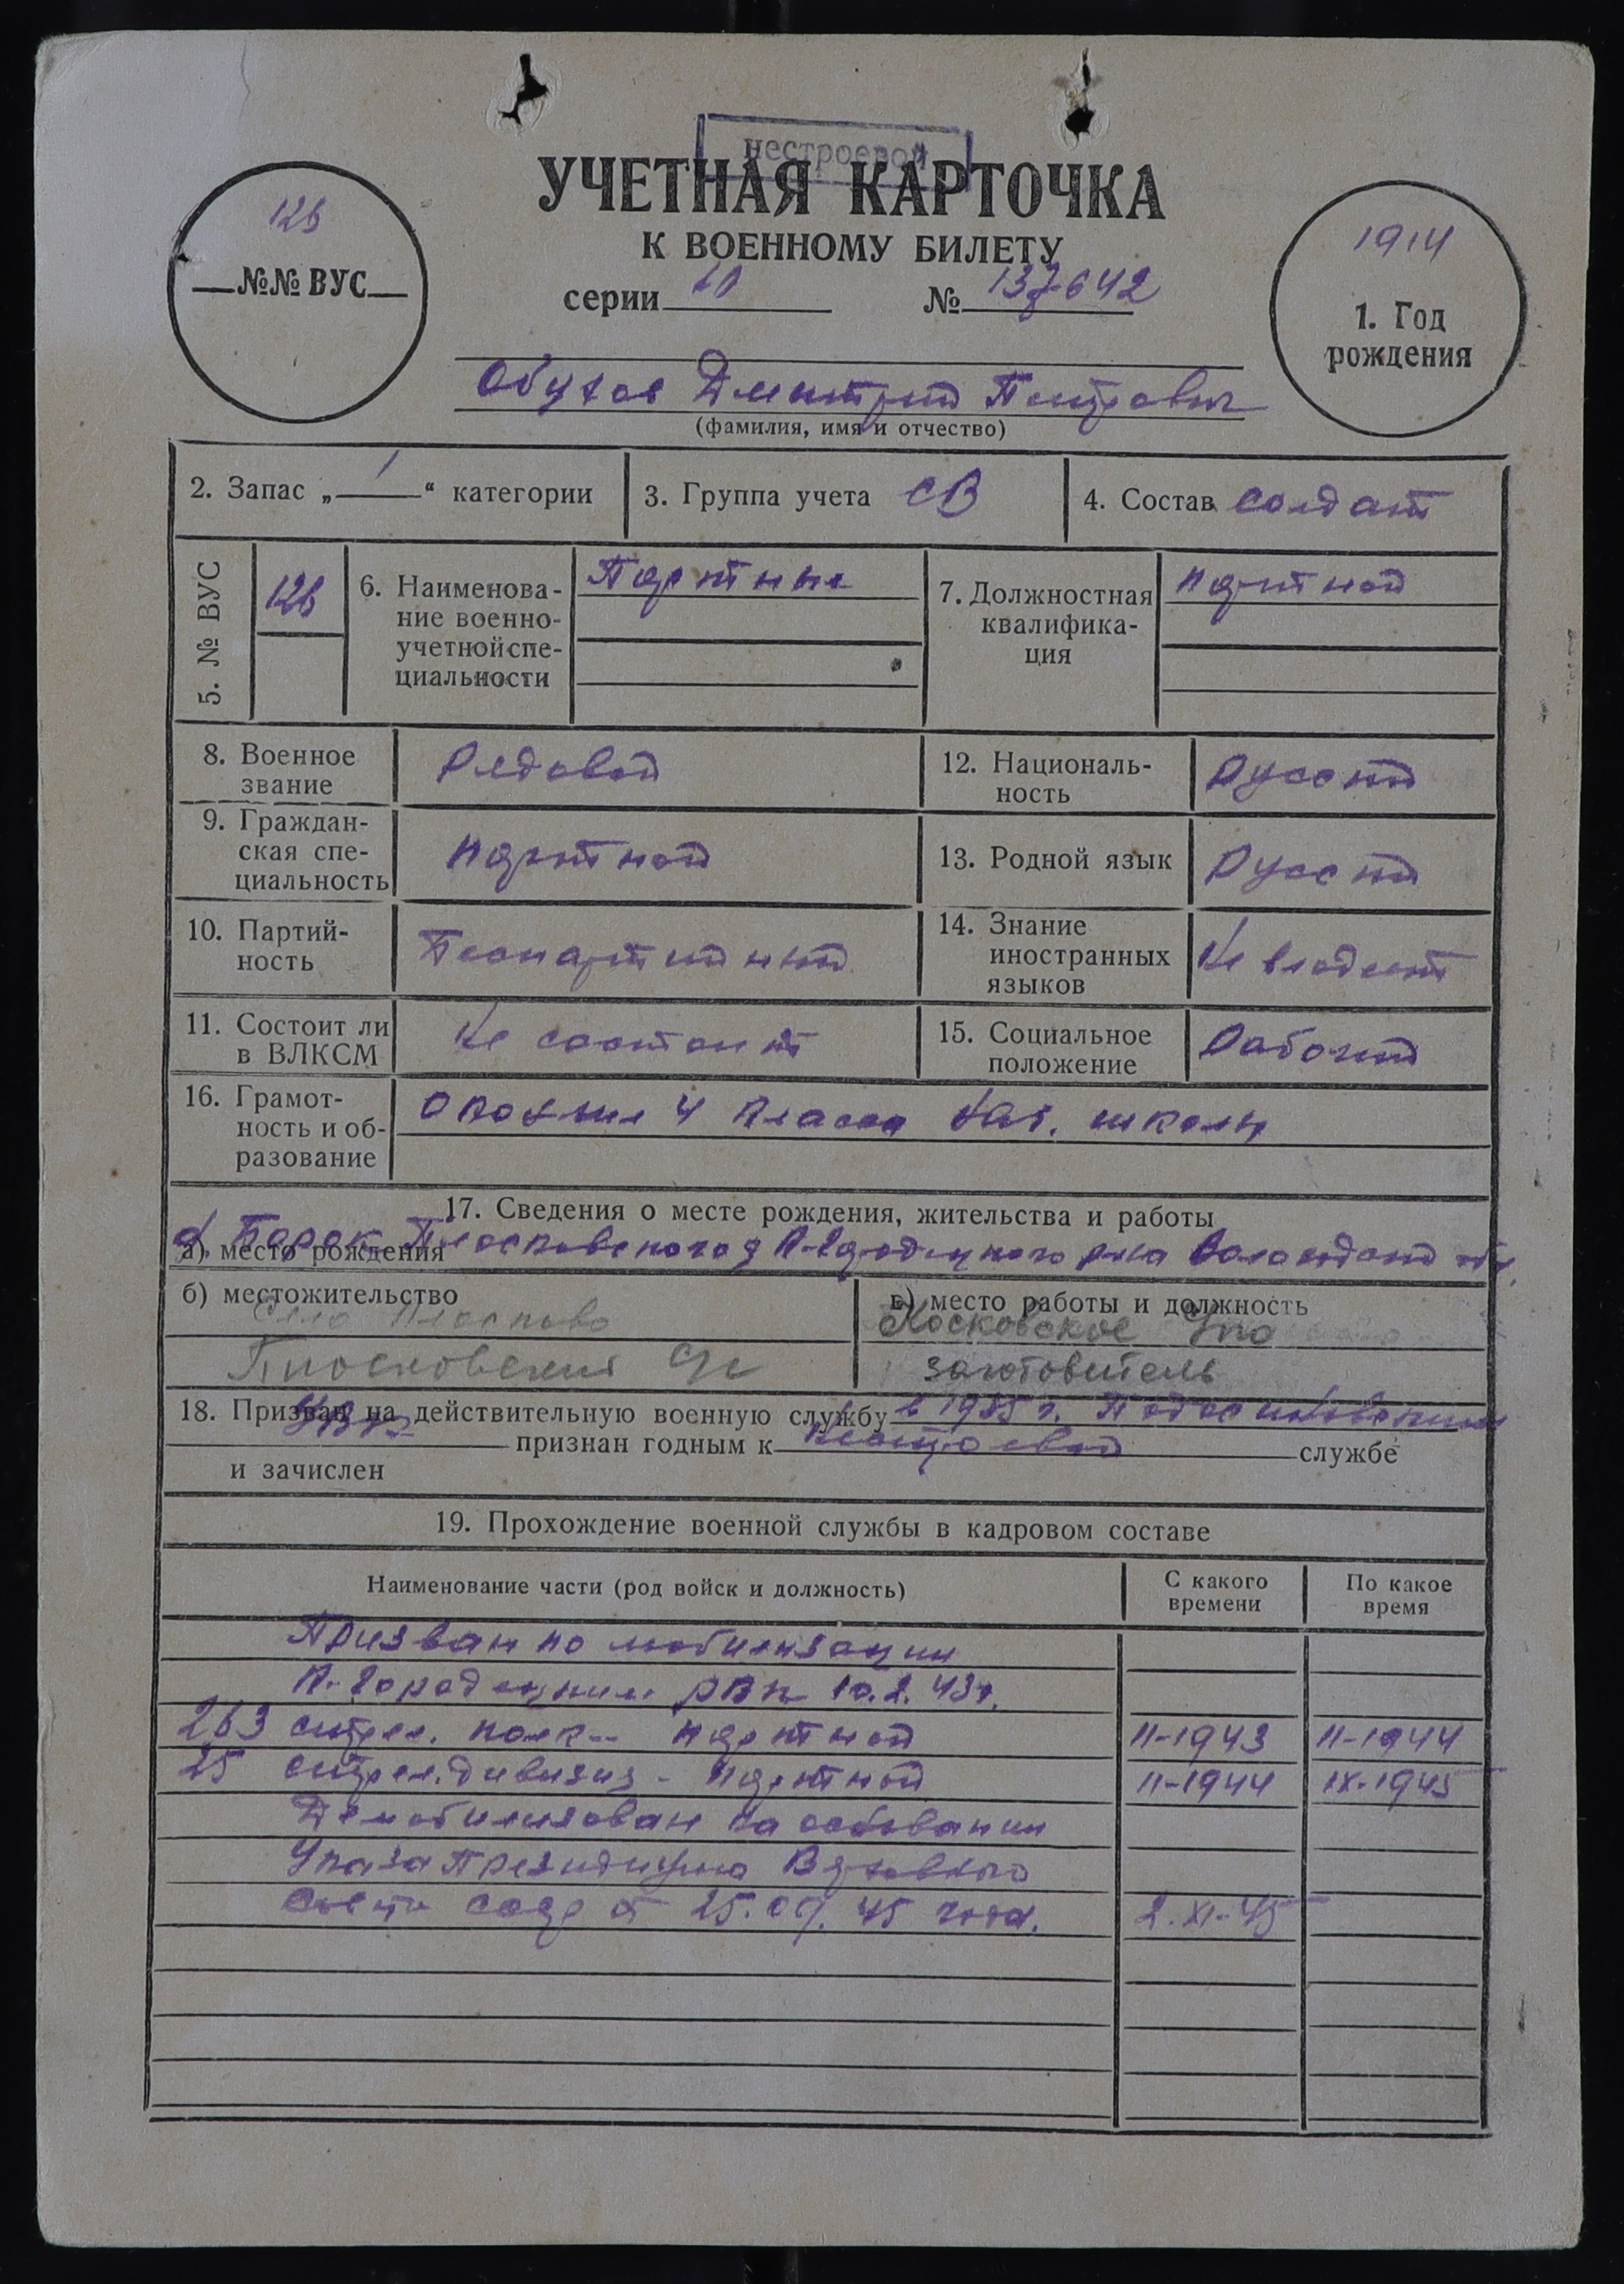 нестроевой
УЧЕТНАЯ КАРТОЧКА
К ВОЕННОМУ БИЛЕТУ
серии № 137642
126
№№ ВУС
1914
1. Год
рождения
Обухов Дмитрий Петрович
(фамилия, имя и отчество)
2. Запас „ 1 “ категории
3. Группа учета СВ
4. Состав солдат
5. № ВУС
126
6. Наименова-
ние военно-
учетной спе-
циальности
Портные
7. Должностная
квалифика-
ция
портной
8. Военное
звание
Рядовой
12. Националь-
ность
Русский
9. Граждан-
ская спе-
циальность
портной
13. Родной язык
Русский
10. Партий-
ность
Беспартийный
14. Знание
иностранных
языков
Не владеет
11. Состоит ли
в ВЛКСМ
Не состоит
15. Социальное
положение
Рабочий
16. Грамот-
ность и об-
разование
4 класса школы
17. Сведения о месте рождения, жительства и работы
а) место рождения
К-Городецкого р-на обл.
б) местожительство
Село
в) место работы и должность
Московское
заготовитель
18. Призван на действительную военную службу в 1935 г.
признан годным к нестроевой службе
и зачислен
19. Прохождение военной службы в кадровом составе
Наименование части (род войск и должность)
С какого
времени
По какое
время
Призван по мобилизации
К-Городецким РВК 10.2.43г.
263 стрел. полк - портной II-1943 II-1944
25 стрел. дивизия - портной II-1944 IX-1945
Демобилизован на основании
Указа Президиума Верховного
Совета СССР от 25.09.45 года. 2.XI-45